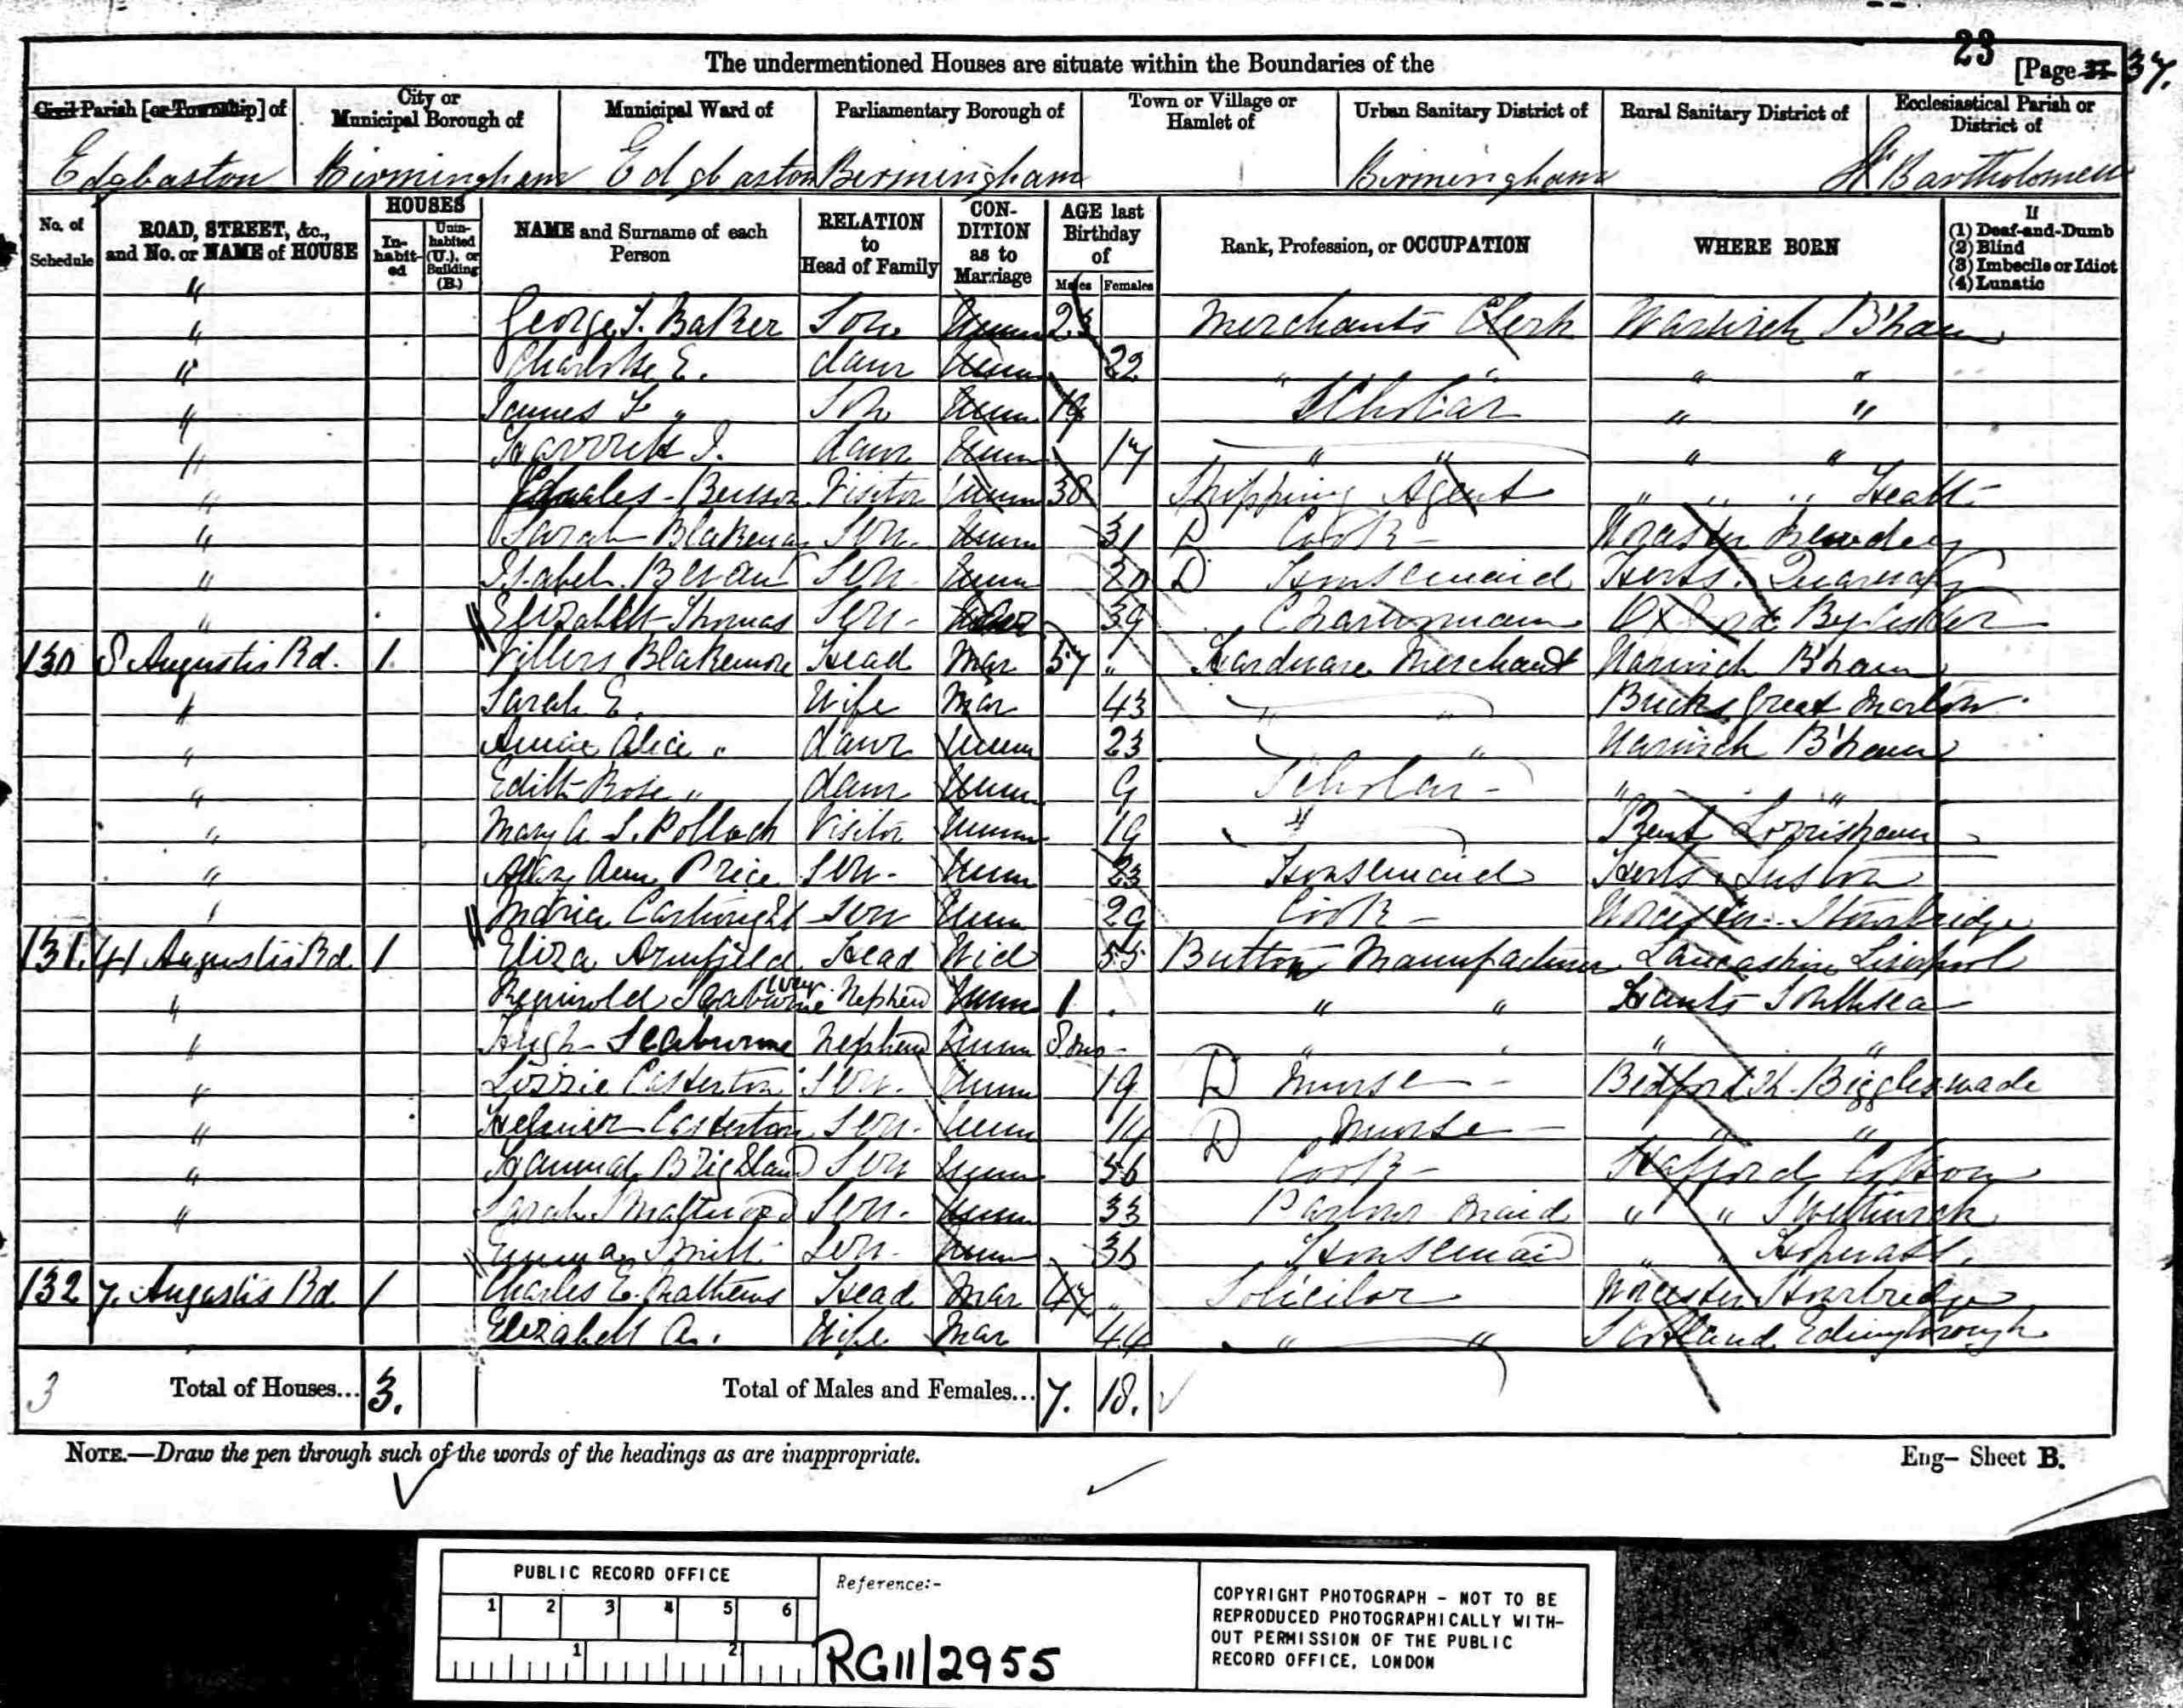 23
The undermentioned Houses are situate within the Boundaries of the [Page 37.
Civil Parish [or Township] of City or Municipal Borough of Municipal Ward of Parliamentary Borough of Town or Village or Hamlet of Urban Sanitary District of Rural Sanitary District of Ecclesiastical Parish or District of
Edgbaston Birmingham Edgbaston Birmingham Birmingham St Bartholomew
No. of Schedule ROAD, STREET, &c., and No. or NAME of HOUSE HOUSES Inhabited Uninhabited (U.), or Building (B.) NAME and Surname of each Person RELATION to Head of Family CONDITION as to Marriage AGE last Birthday of Males Females Rank, Profession, or OCCUPATION WHERE BORN If (1) Deaf-and-Dumb (2) Blind (3) Imbecile or Idiot (4) Lunatic
" George T. Baker Son Unm 23 Merchants Clerk Warwick B'ham
" Charlotte E. daur Unm 22 " " " "
" James F " Son Unm 19 Scholar " "
" Harriett J. daur Unm 17 " " " "
" Visitor Unm 38 Shipping Agent " " " Heath
" Sarah Blakeman Serv. Unm 31 D Cook Worcester Bewdley
" Isabel Bevan Serv. Unm 20 D Housemaid
" Elizabeth Thomas Serv. 39 Charwoman Oxford
130 8 Augustus Rd. 1 Villers Blakemore Head Mar 57 " Hardware Merchant Warwick B'ham
" Sarah E. Wife Mar 43 " " Bucks Great Marlow
" Annie Alice " daur Unm 23 " Warwick B'ham
" Edith Rose " daur Unm 9 Scholar " "
" Mary A. S. Pollock Visitor Unm 19 " Kent
" Mary Ann Price Serv. Unm 23 Housemaid Luston
" Maria Cartwright Serv Unm 29 Cook Worcester Stourbridge
131. 41 Augustus Rd. 1 Eliza Armfield Head Wid 55 Button Manufacturer Lancashire Liverpool
" Reginold Seaburne Nephew Unm 1 " " Hants Southsea
" Hugh Seaburne Nephew Unm 8mo " " " "
" Lizzie Casterton Serv. Unm 19 D Nurse Bedfordsh. Biggleswade
" Casterton Serv. Unm 14 D Nurse " "
" Hannah Brighland Serv Unm 56 Cook Stafford
" Sarah Smallwood Serv. Unm 33 Parlour Maid " "
Emma Smith Serv. Unm 36 Housemaid " "
132 7. Augustus Rd. 1 Charles E. Mathews Head Mar 47 " Solicitor Worcester Stourbridge
Elizabeth A. Wife Mar 44 " " Scotland Edingborough
3 Total of Houses... 3. Total of Males and Females... 7. 18.
NOTE.—Draw the pen through such of the words of the headings as are inappropriate. Eng- Sheet B.
PUBLIC RECORD OFFICE
1 2 3 4 5 6
1 2
Reference:-
RG11/2955
COPYRIGHT PHOTOGRAPH - NOT TO BE
REPRODUCED PHOTOGRAPHICALLY WITH-
OUT PERMISSION OF THE PUBLIC
RECORD OFFICE, LONDON